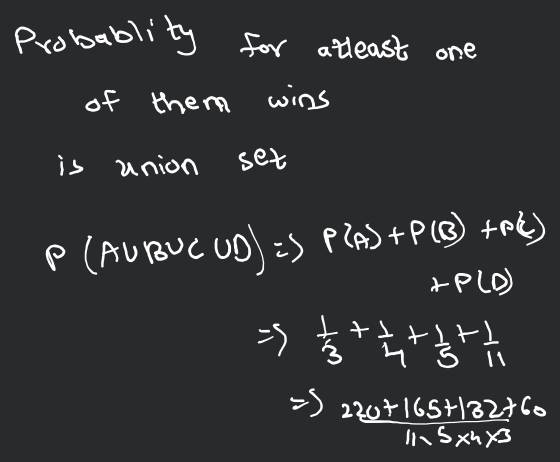 Probablity for atleast one
of them wins
is union set
P (AUBUCUD) => P(A) + P(B) + P(C)
+ P(D)
=> 1/3 + 1/4 + 1/5 + 1/11
=> 220+165+132+60
11x5x4x3